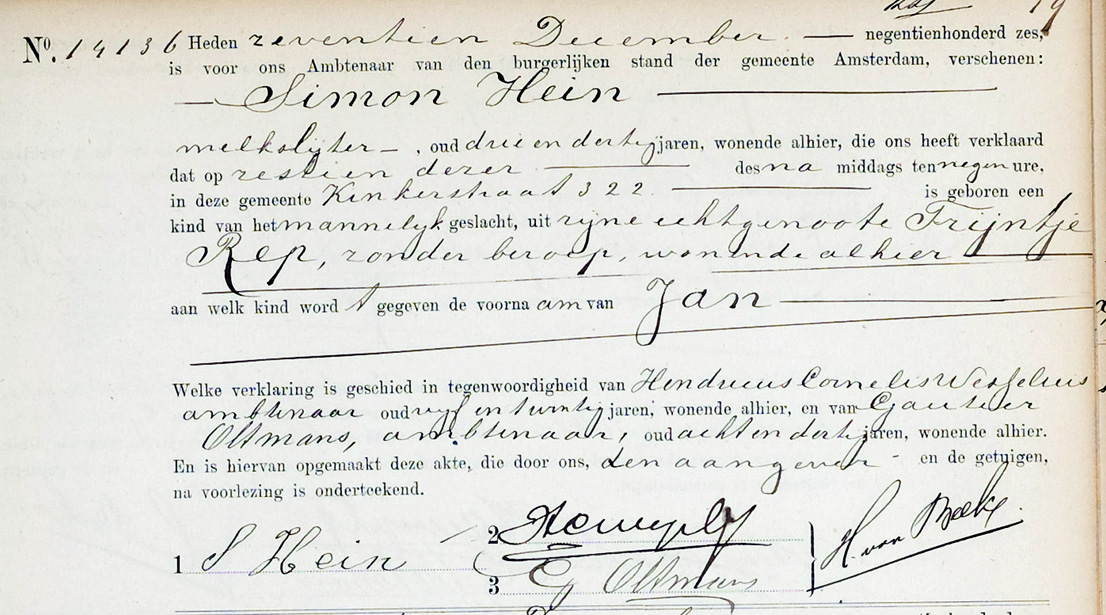 No. 14136 Heden zeventien December negentienhonderd zes,
is voor ons Ambtenaar van den burgerlijken stand der gemeente Amsterdam, verschenen:
Simon Hein
melkslijter, oud drie en dertig jaren, wonende alhier, die ons heeft verklaard
dat op zestien dezer des na middags ten negen ure,
in deze gemeente Kinkerstraat 322 is geboren een
kind van het mannelijk geslacht, uit zijne echtgenoote Trijntje
Rep, zonder beroep, wonende alhier
aan welk kind wordt gegeven de voornaam van Jan
Welke verklaring is geschied in tegenwoordigheid van Hendricus Cornelis Wesselius
ambtenaar oud vijf en twintig jaren, wonende alhier, en van
Oltmans, ambtenaar, oud acht en dertig jaren, wonende alhier.
En is hiervan opgemaakt deze akte, die door ons, den aangever en de getuigen,
na voorlezing is onderteekend.
1 S Hein
2
3 G Oltmans
H van